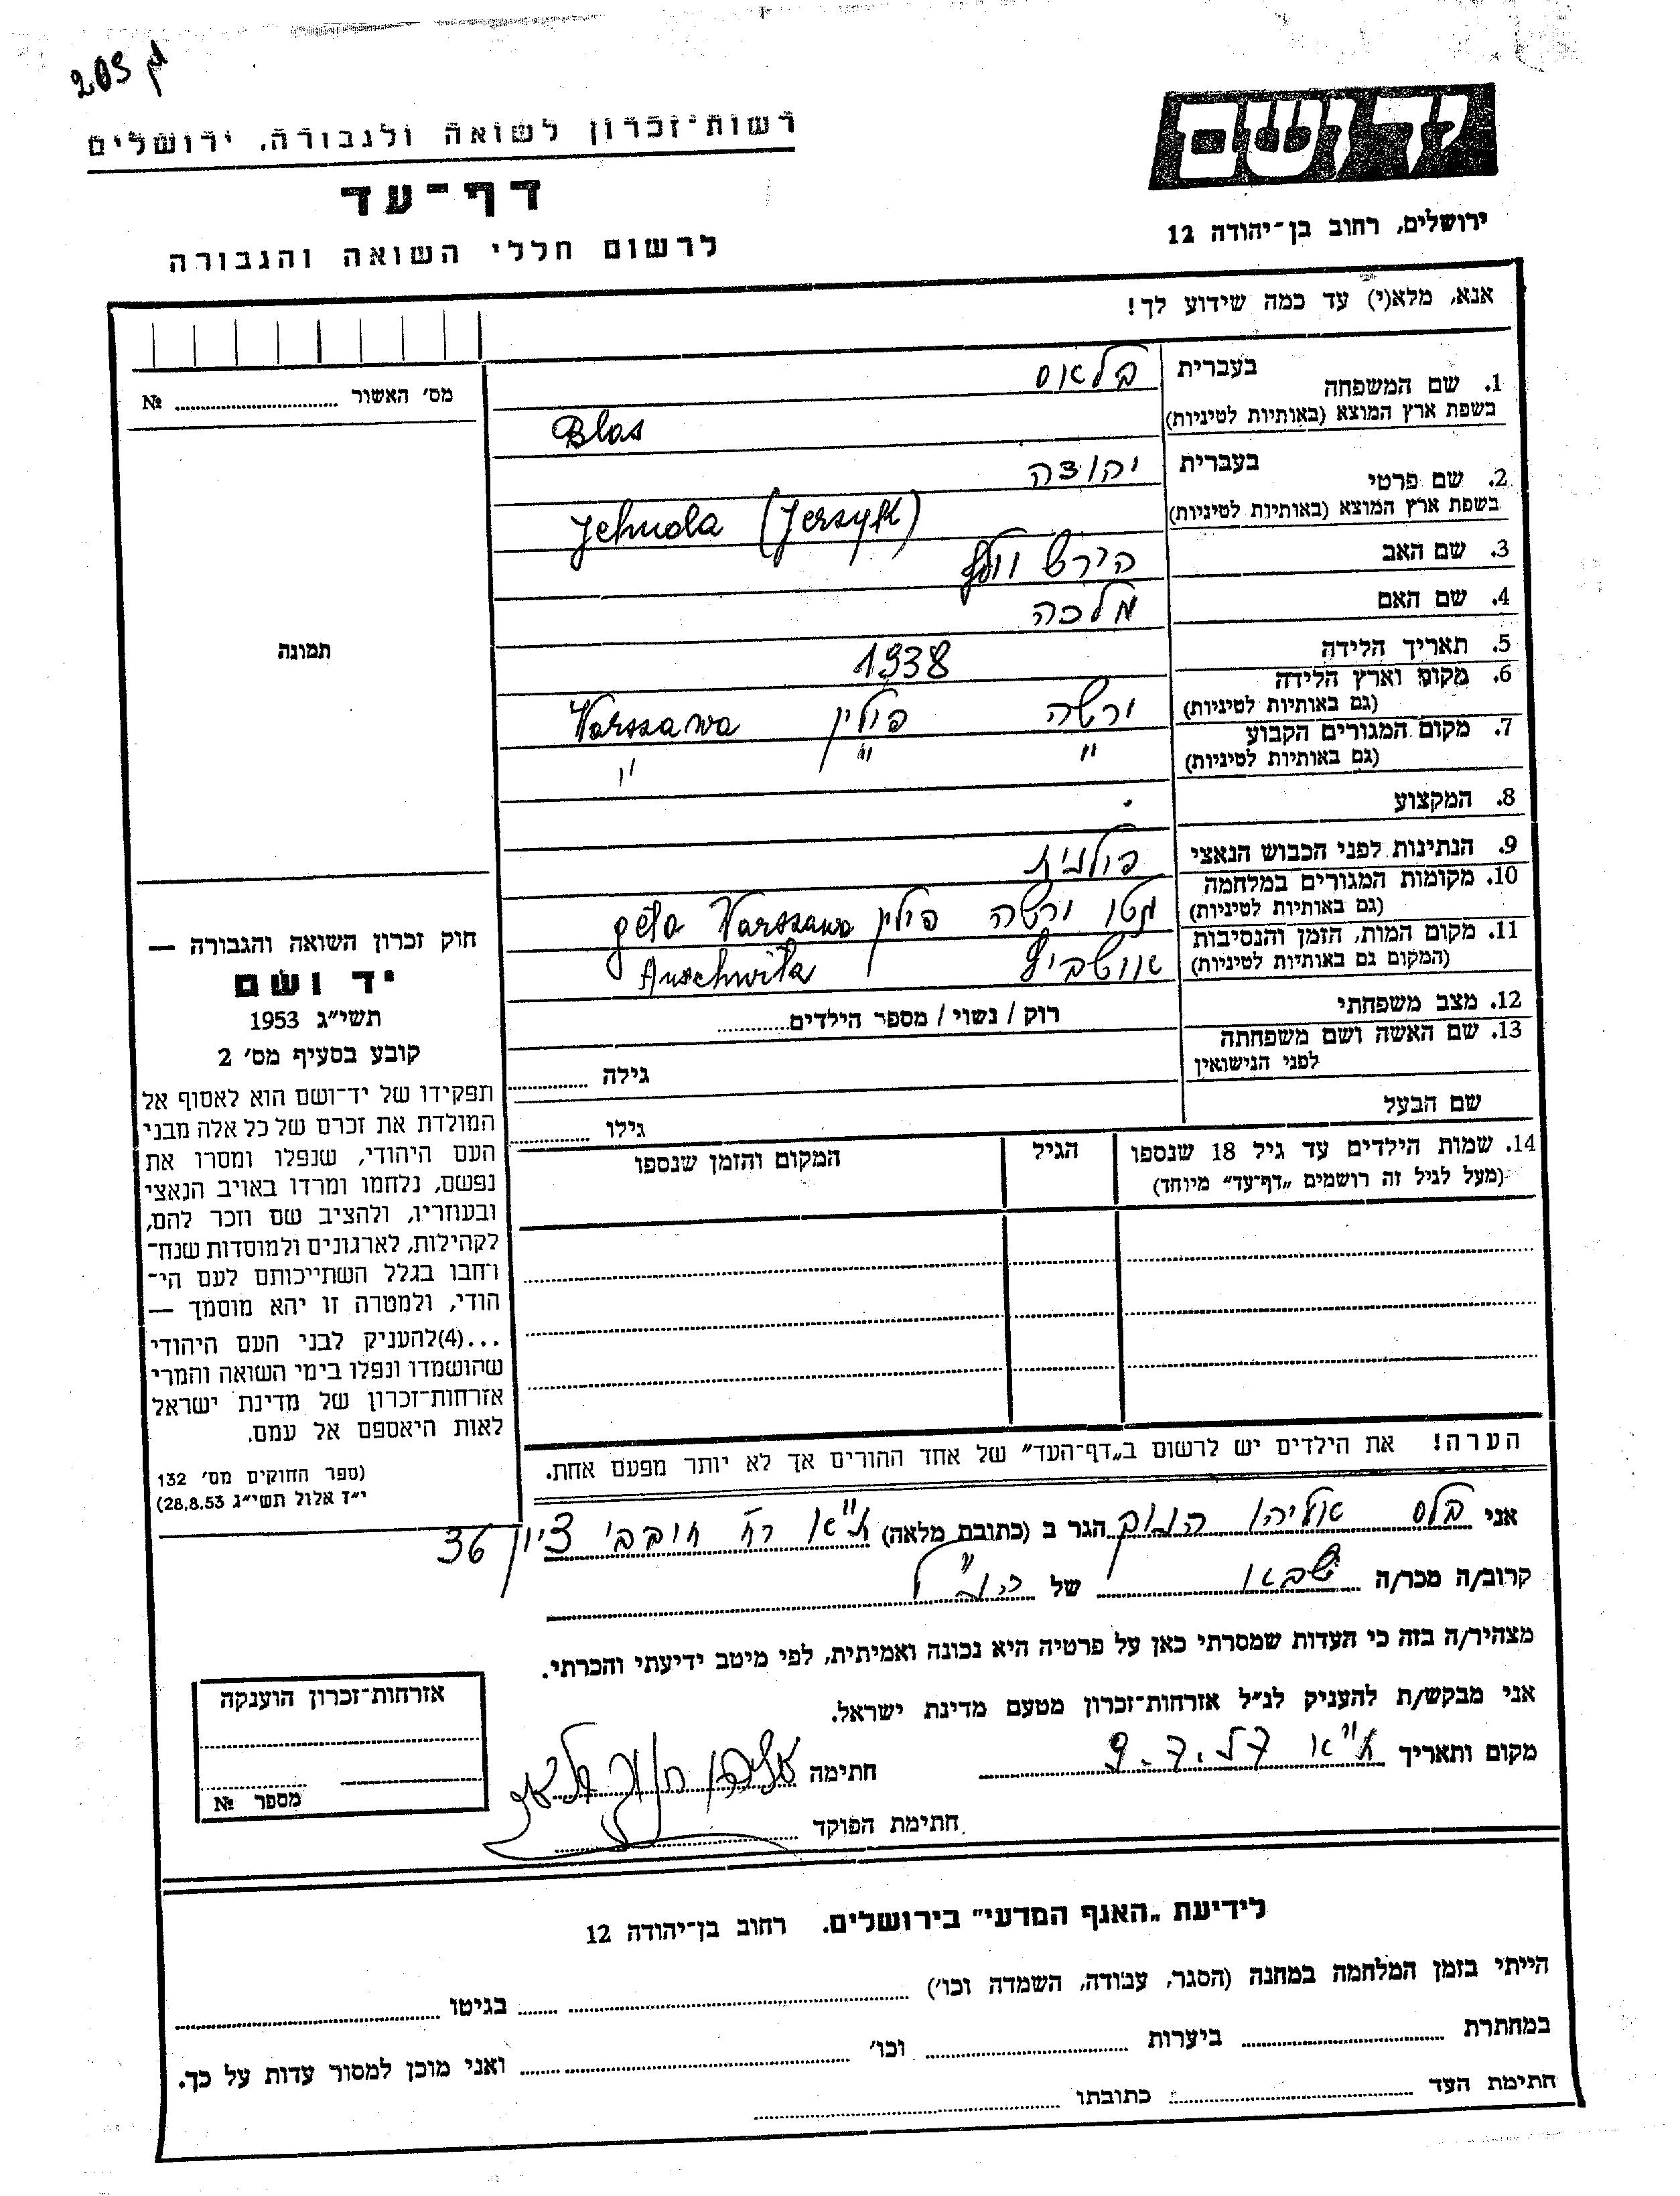 רשות־זכרון לשואה ולגבורה, ירושלים
דף־עד
לרשום חללי השואה והגבורה
יד ושם
ירושלים, רחוב בן־יהודה 12
אנא, מלא(י) עד כמה שידוע לך!
מס' האשור № ........
תמונה
1. שם המשפחה בעברית בלאס
בשפת ארץ המוצא (באותיות לטיניות) Blas
2. שם פרטי בעברית יהודה
בשפת ארץ המוצא (באותיות לטיניות) Jehuda (Jerzyk)
3. שם האב הירש וולף
4. שם האם מלכה
5. תאריך הלידה 1938
6. מקום וארץ הלידה (גם באותיות לטיניות) ורשה פולין Warszawa
7. מקום המגורים הקבוע (גם באותיות לטיניות) " " "
8. המקצוע
9. הנתינות לפני הכבוש הנאצי פולנית
10. מקומות המגורים במלחמה (גם באותיות לטיניות) גטו ורשה פולין geto Warszawa
11. מקום המות, הזמן והנסיבות (המקום גם באותיות לטיניות) אושביץ Auschwitz
12. מצב משפחתי רוק / נשוי / מספר הילדים........
13. שם האשה ושם משפחתה לפני הנישואין גילה ........
שם הבעל גילו ........
14. שמות הילדים עד גיל 18 שנספו (מעל לגיל זה רושמים „דף־עד" מיוחד)
הגיל
המקום והזמן שנספו
הערה! את הילדים יש לרשום ב„דף־העד" של אחד ההורים אך לא יותר מפעם אחת.
חוק זכרון השואה והגבורה —
יד ושם
תשי"ג 1953
קובע בסעיף מס' 2
תפקידו של יד־ושם הוא לאסוף אל
המולדת את זכרם של כל אלה מבני
העם היהודי, שנפלו ומסרו את
נפשם, נלחמו ומרדו באויב הנאצי
ובעוזריו, ולהציב שם וזכר להם,
לקהילות, לארגונים ולמוסדות שנח־
רבו בגלל השתייכותם לעם הי־
הודי, ולמטרה זו יהא מוסמך —
...(4)להעניק לבני העם היהודי
שהושמדו ונפלו בימי השואה והמרי
אזרחות־זכרון של מדינת ישראל
לאות היאספם אל עמם.
(ספר החוקים מס' 132
י"ז אלול תשי"ג 28.8.53)
אני בלס אליהו חנוך הגר ב (כתובת מלאה) ת"א רח' חובבי ציון 36
קרוב/ה מכר/ה של הנ"ל
מצהיר/ה בזה כי העדות שמסרתי כאן על פרטיה היא נכונה ואמיתית, לפי מיטב ידיעתי והכרתי.
אני מבקש/ת להעניק לנ"ל אזרחות־זכרון מטעם מדינת ישראל.
מקום ותאריך ת"א 9.7.57 חתימה
חתימת הפוקד ........
אזרחות־זכרון הוענקה
מספר №
לידיעת „האגף המדעי" בירושלים. רחוב בן־יהודה 12
הייתי בזמן המלחמה במחנה (הסגר, עבודה, השמדה וכו') ........ בגיטו ........
במחתרת ........ ביערות ........ וכו' ........ ואני מוכן למסור עדות על כך.
חתימת העד ........ כתובתו ........